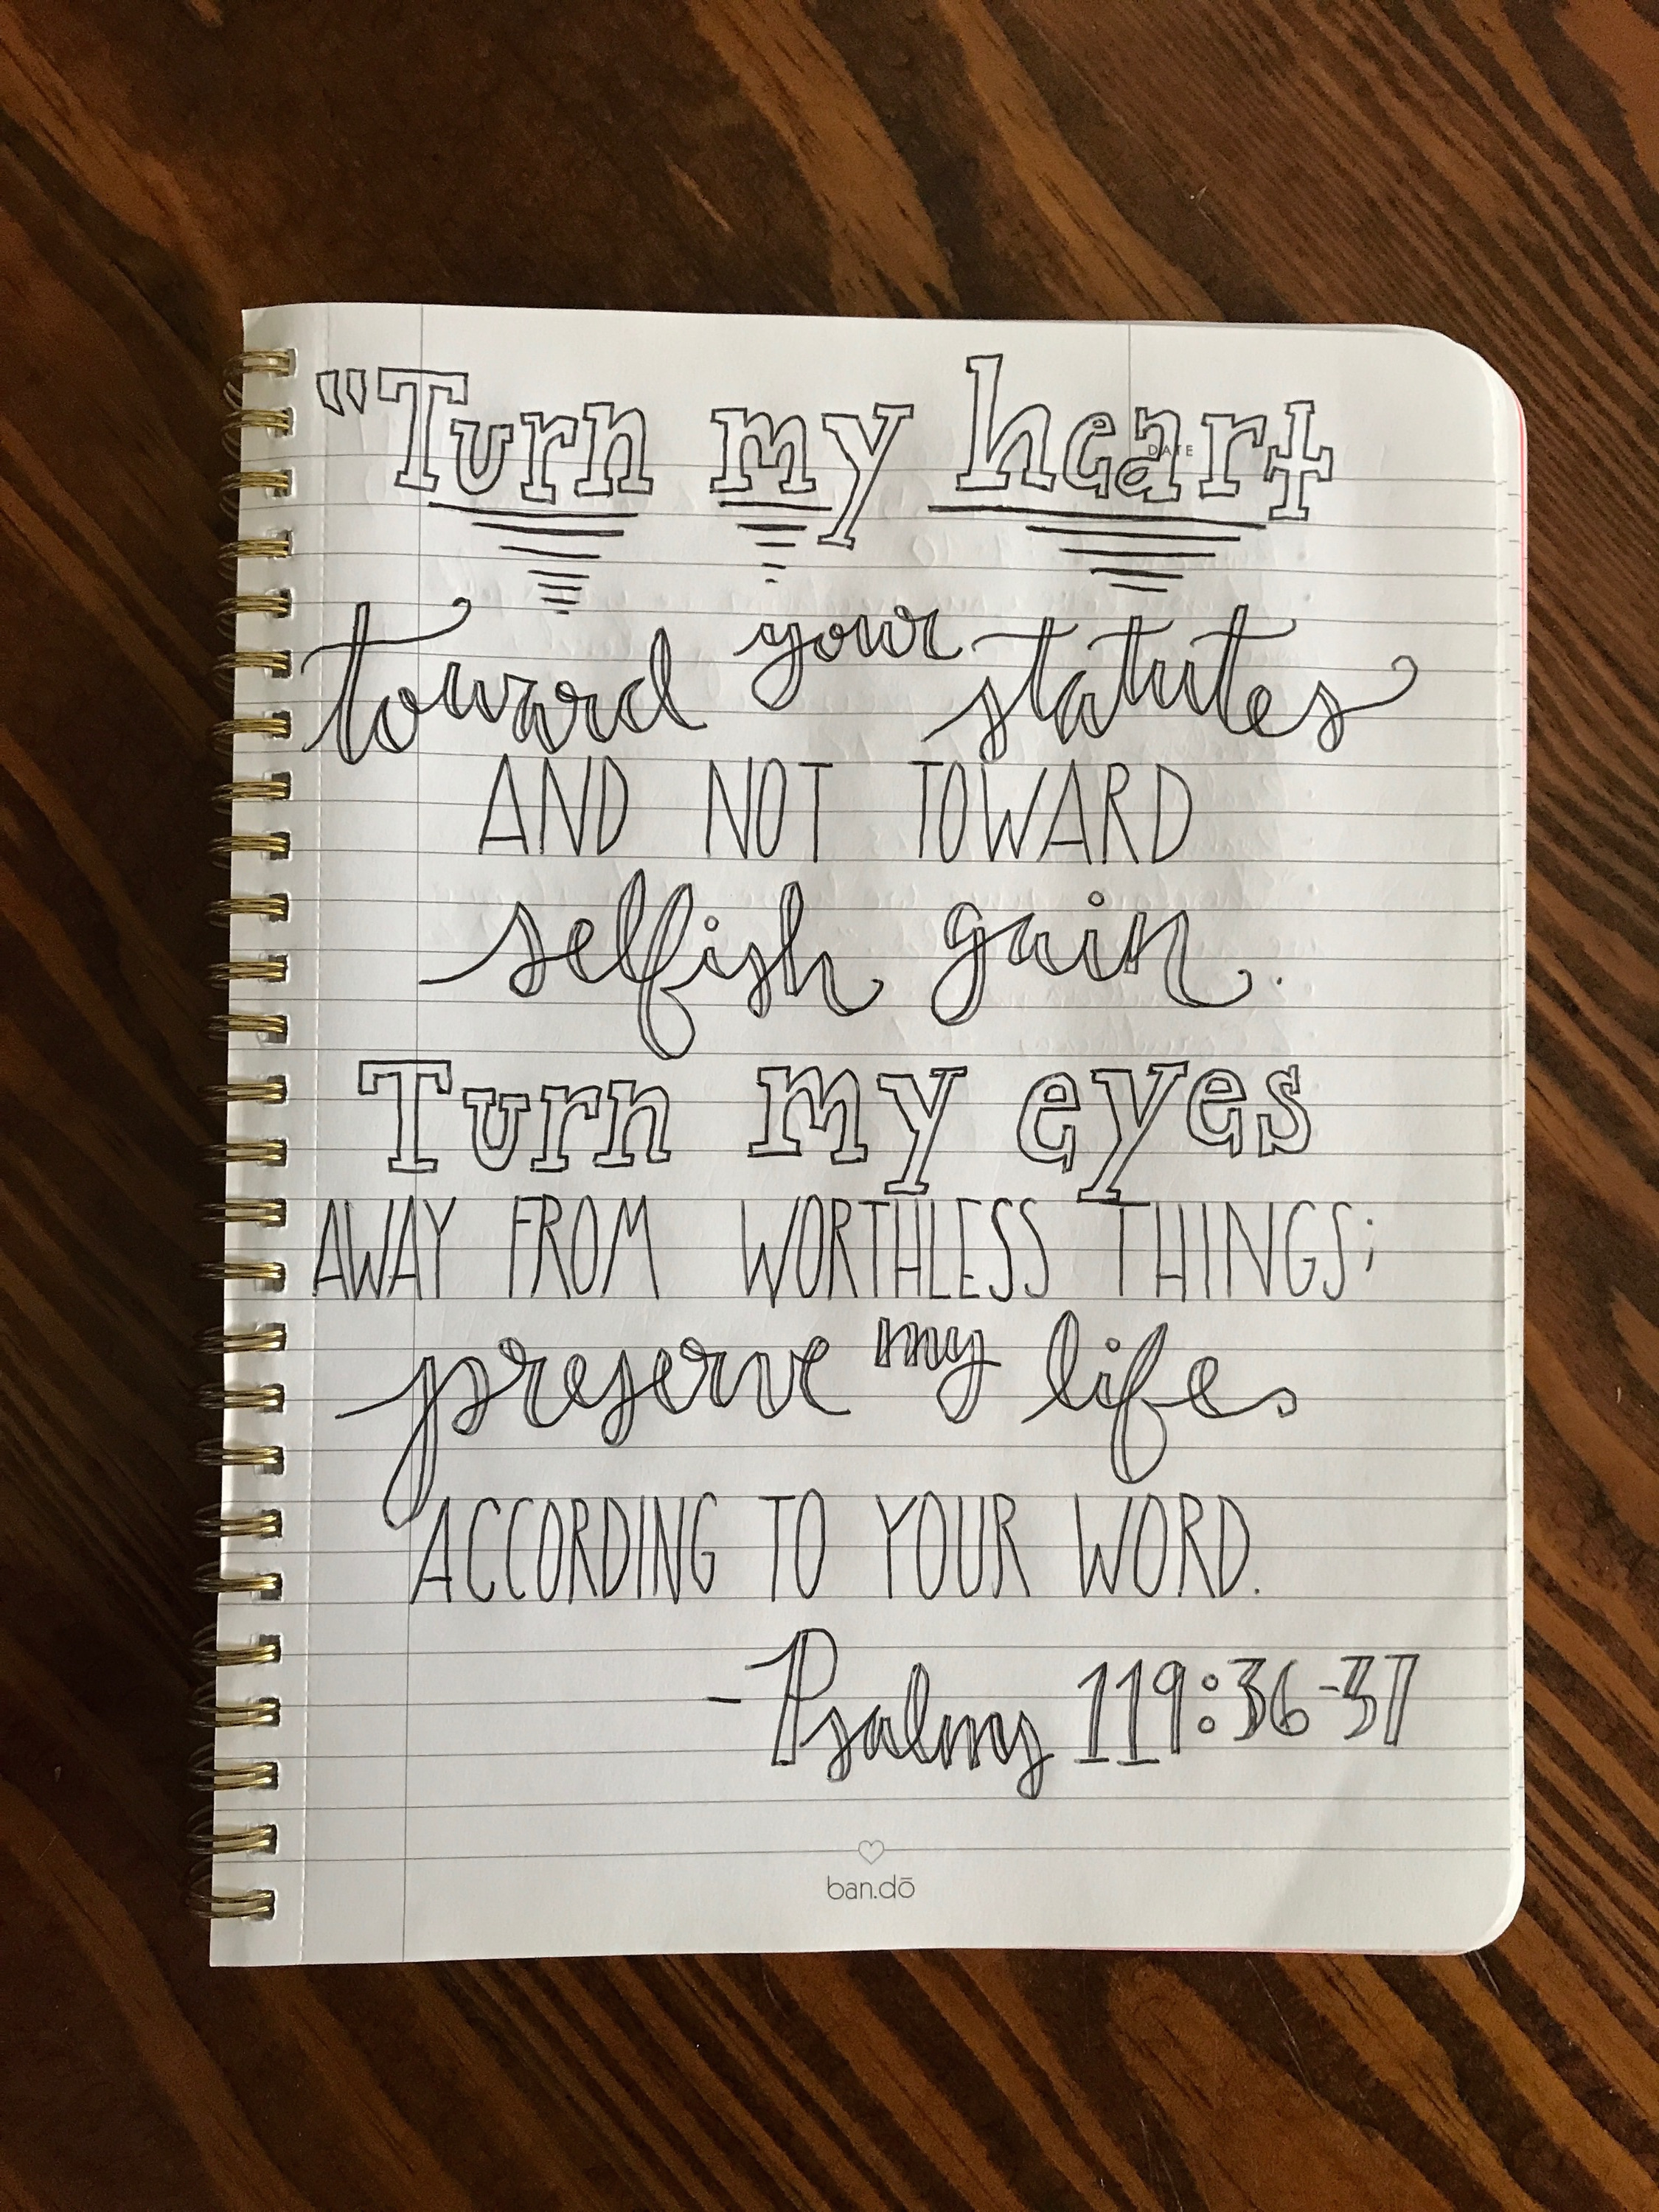 "Turn my heart
DATE
toward your statutes
AND NOT TOWARD
selfish gain.
Turn my eyes
AWAY FROM WORTHLESS THINGS;
preserve my life
ACCORDING TO YOUR WORD.
-Psalms 119:36-37
ban.dō